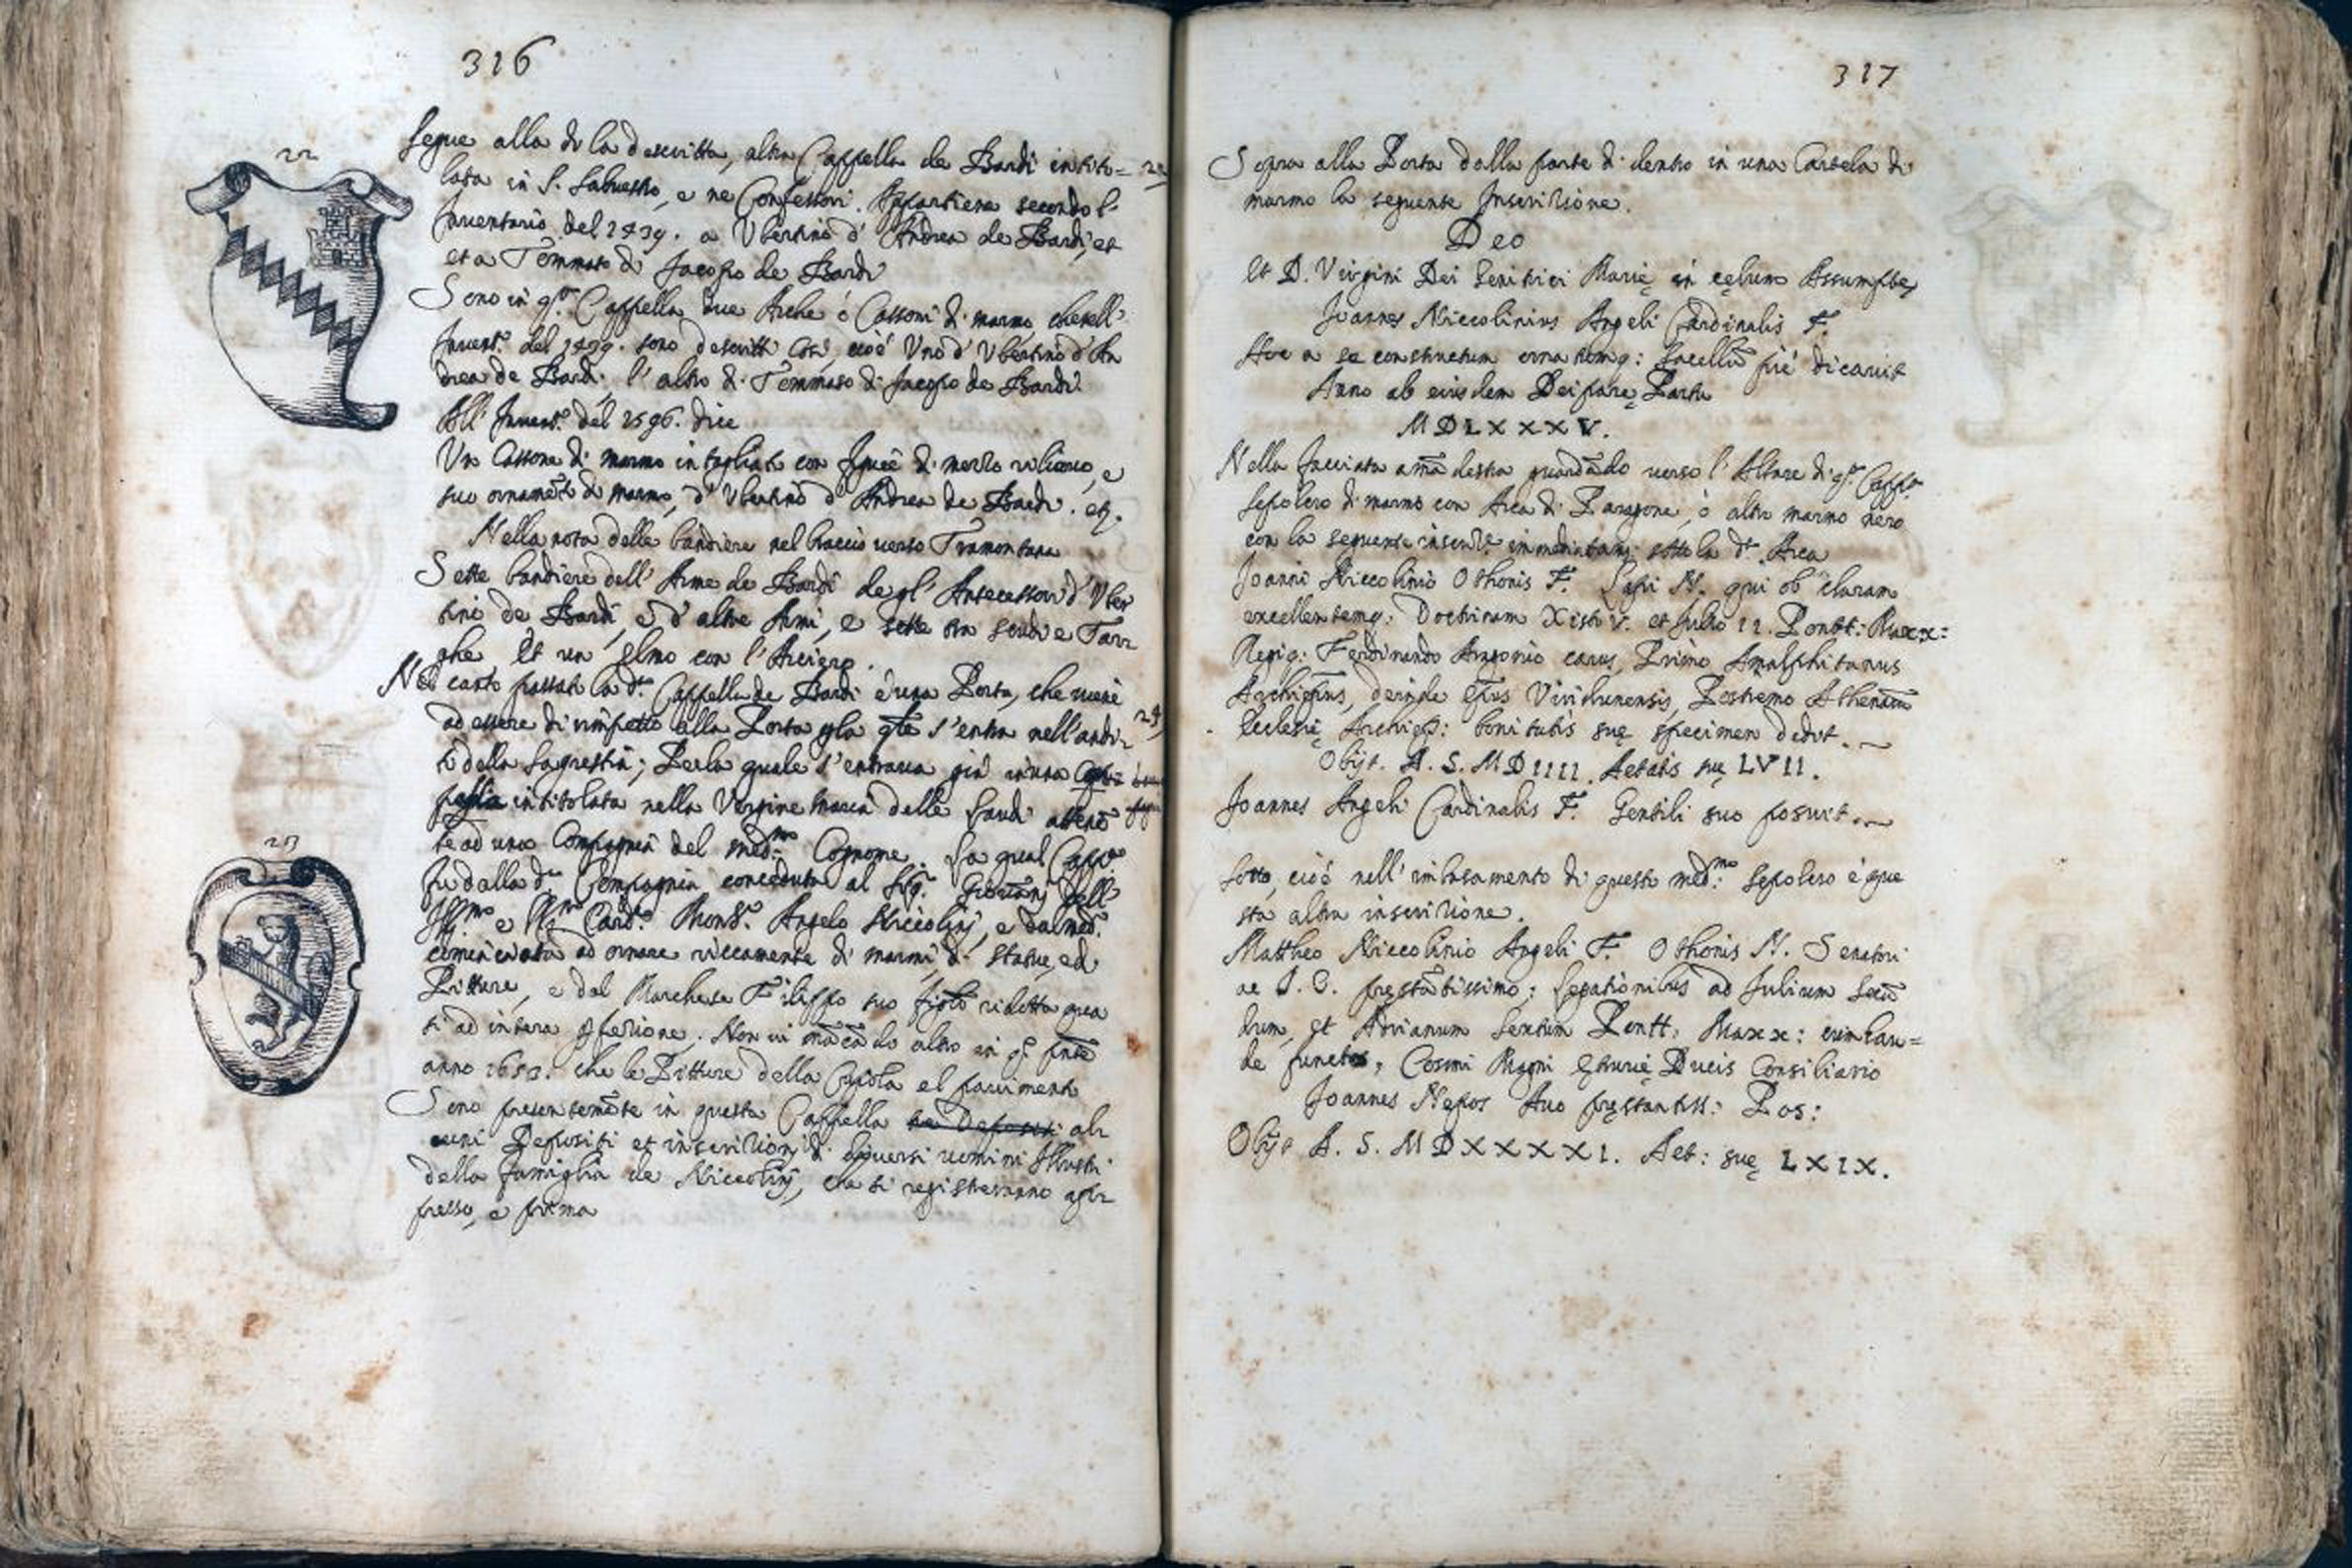 316
22
Segue alla di la descritta, altra Cappella de Bardi intito= 22
lata in S. Salvestro, e ne Confessori. Appartiene secondo l'
Inventario del 1439. a Ubertino d' Andrea de Bardi, et
et a Tommaso di Jacopo de Bardi
Sono in qta. Cappella due Arche ò Cassoni di marmo che nell'
Invent.o del 1439. sono descritti così, cioè Uno d' Ubertino d' An
drea de Bardi. l' altro di Tommaso di Jacopo de Bardi
All' Invent.o del 1596. dice
Un Cassone di marmo intagliato con figure di mezzo rilievo, e
suo ornamēto di marmo, d' Ubertino d' Andrea de Bardi. etc.
Nella nota delle bandiere nel braccio verso Tramontana
Sette bandiere dell' Arme de Bardi de gl' Antecessori d' Uber
tino de Bardi, e d' altre Armi, e sette tra scudi e Tar
ghe, Et un Elmo con l' Arciero.
Nel canto passata la d.a Cappella de Bardi è una Porta, che viene
ad essere di rimpetto alla Porta p la qle s' entra nell' andi 23
to della Sagrestia; Per la quale s' entrava già in una
intitolata nella Vergine Maria delle Laudi attenē
te ad una Compagnia del med.mo Cognome. La qual Capp.a
fu dalla d.a Compagnia conceduta al Sig.r Giovanni dell'
Ill.mo e R.mo Card.e Mons.r Angelo Niccolinj, e dal med.o
cominciata ad ornare riccamente di marmi di statue, ed
Pitture, e dal Marchese Filippo suo figlo ridotta qua
si ad intera pfezione. Non vi mācādo altro in q.o pñte
anno 1653. che le Pitture della Cupola el pavimento
Sono presentemēte in questa Cappella tre Depositi al
cuni Depositi et inscrizionj di diversi uomini Illustri
della famiglia de Niccolinj, che si registreranno ap
presso, e prima
23
317
Sopra alla Porta dalla parte di dentro in una Cartela di
marmo la seguente Inscrizione.
Deo
Et D. Virgini Dei Genitrici Marię in cęlum Assumptę
Joannes Niccolinius Angeli Cardinalis F.
Hoc a se constructum ornatumq: Sacellū piè dicavit
Anno ab eiusdem Deiparę Partu
MDLXXXV.
Nella facciata a mā destra guardādo verso l' Altare di q.a Capp.a
Sepolcro di marmo con Arca di Paragone, ò altro marmo nero
con la seguente inscriz.e immediatam: sotto la d.a Arca
Joanni Niccolinio Othonis F. Lapi N. qui ob claram
excellentemq: Doctrinam Xisto V. et Julio II. Pontt: Maxx:
Regiq: Ferdinando Aragonio carus, Primo Amalphitanus
Archieps, deinde Eps Virdunensis, Postremo Athenarū
Ecclesię Archiep: bonitatis suę specimen dedit.
Obijt. A. S. MDIIII. Aetatis suę LVII.
Joannes Angeli Cardinalis F. Gentili suo posuit.
Sotto, cioè nell' imbasamento di questo med.mo Sepolcro è que
sta altra inscrizione.
Mattheo Niccolinio Angeli F. Othonis N. Senatori
ac I. C. pręstātissimo; Legationibus ad Julium Secū
dum, et Adrianum Sextum Pontt. Maxx: cum lau=
de functo, Cosmi Magni Etrurię Ducis Consiliario
Joannes Nepos Avo pręstantiss: Pos:
Obijt A. S. MDXXXXI. Aet: suę LXIX.